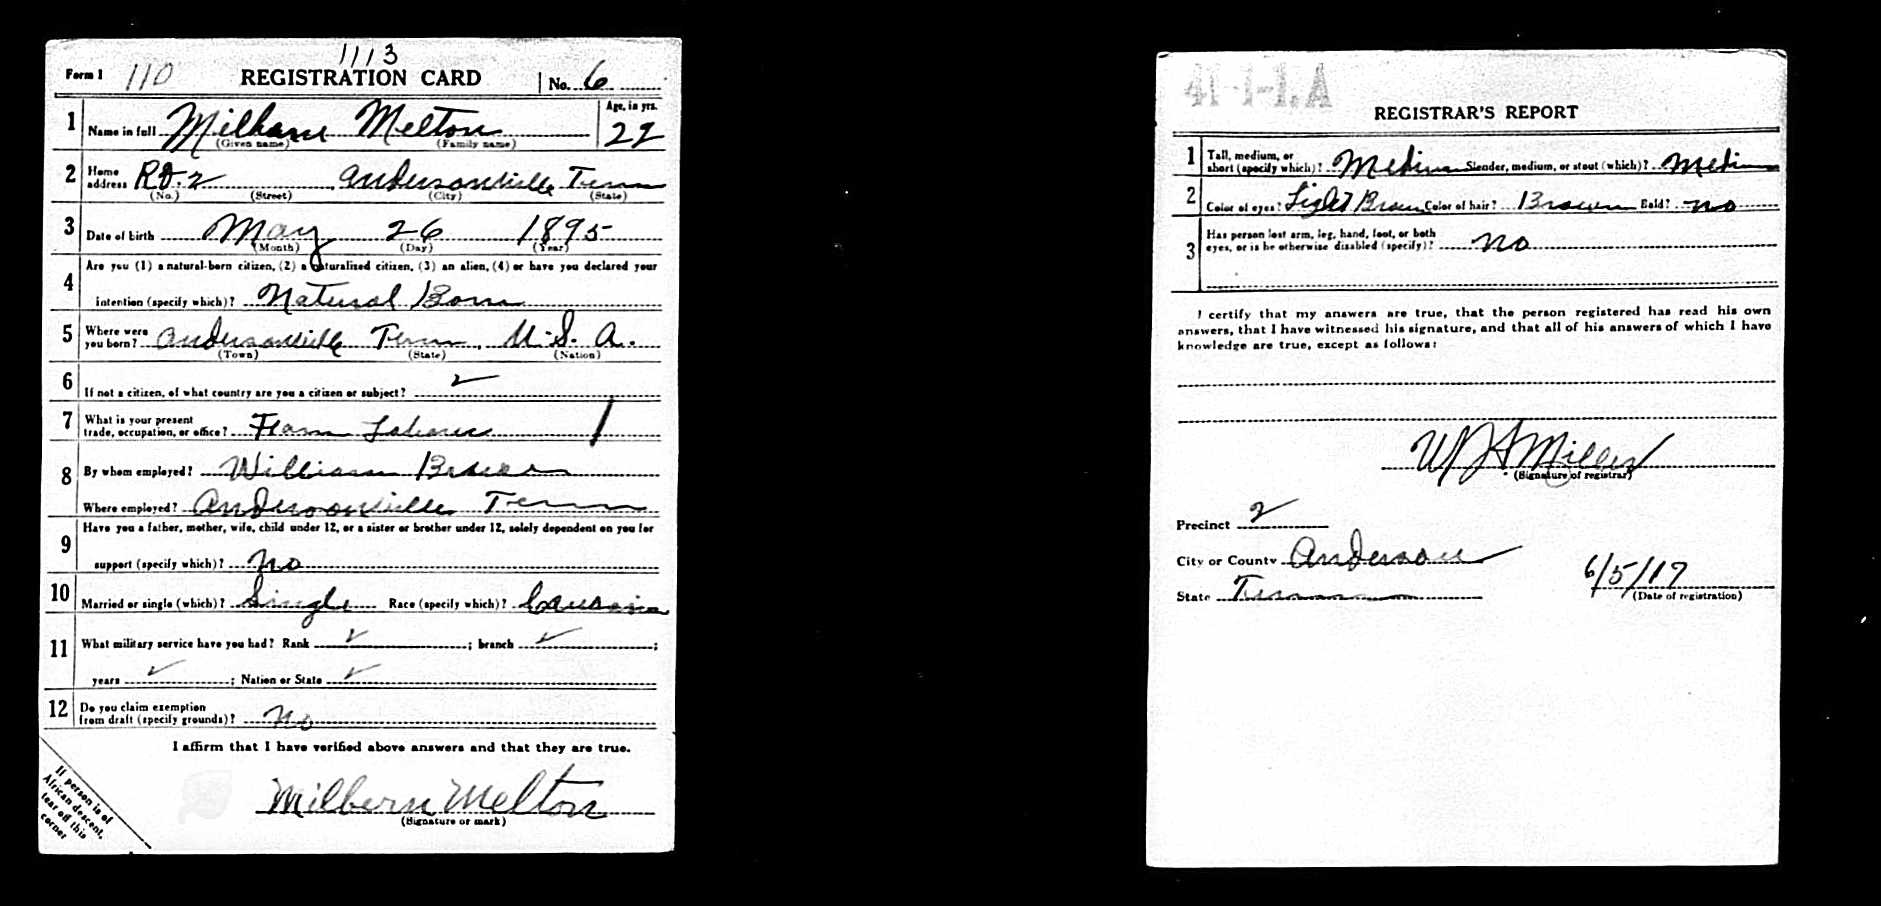 1113
Form 1 110 REGISTRATION CARD No. 6
1 Name in full Milharn Melton Age, in yrs. 22
(Given name) (Family name)
2 Home address RD. 2 Andersonville Tenn
(No.) (Street) (City) (State)
3 Date of birth May 26 1895
(Month) (Day) (Year)
4 Are you (1) a natural-born citizen, (2) a naturalized citizen, (3) an alien, (4) or have you declared your
intention (specify which)? Natural Born
5 Where were you born? Andersonville Tenn. U.S.A.
(Town) (State) (Nation)
6 If not a citizen, of what country are you a citizen or subject?
7 What is your present trade, occupation, or office? Farm Laborer
8 By whom employed? William
Where employed? Andersonville Tenn
9 Have you a father, mother, wife, child under 12, or a sister or brother under 12, solely dependent on you for
support (specify which)? No
10 Married or single (which)? Single Race (specify which)? Caucasian
11 What military service have you had? Rank ; branch ;
years ; Nation or State
12 Do you claim exemption from draft (specify grounds)? No
I affirm that I have verified above answers and that they are true.
Milbern Melton
(Signature or mark)
If person is of
African descent,
tear off this
corner
41-1-1.A
REGISTRAR'S REPORT
1 Tall, medium, or short (specify which)? Medium Slender, medium, or stout (which)? Medium
2 Color of eyes? Light Brown Color of hair? Brown Bald? No
3 Has person lost arm, leg, hand, foot, or both
eyes, or is he otherwise disabled (specify)? No
I certify that my answers are true, that the person registered has read his own
answers, that I have witnessed his signature, and that all of his answers of which I have
knowledge are true, except as follows:
Miller
(Signature of registrar)
Precinct 2
City or County Anderson
State Tenn
6/5/17
(Date of registration)